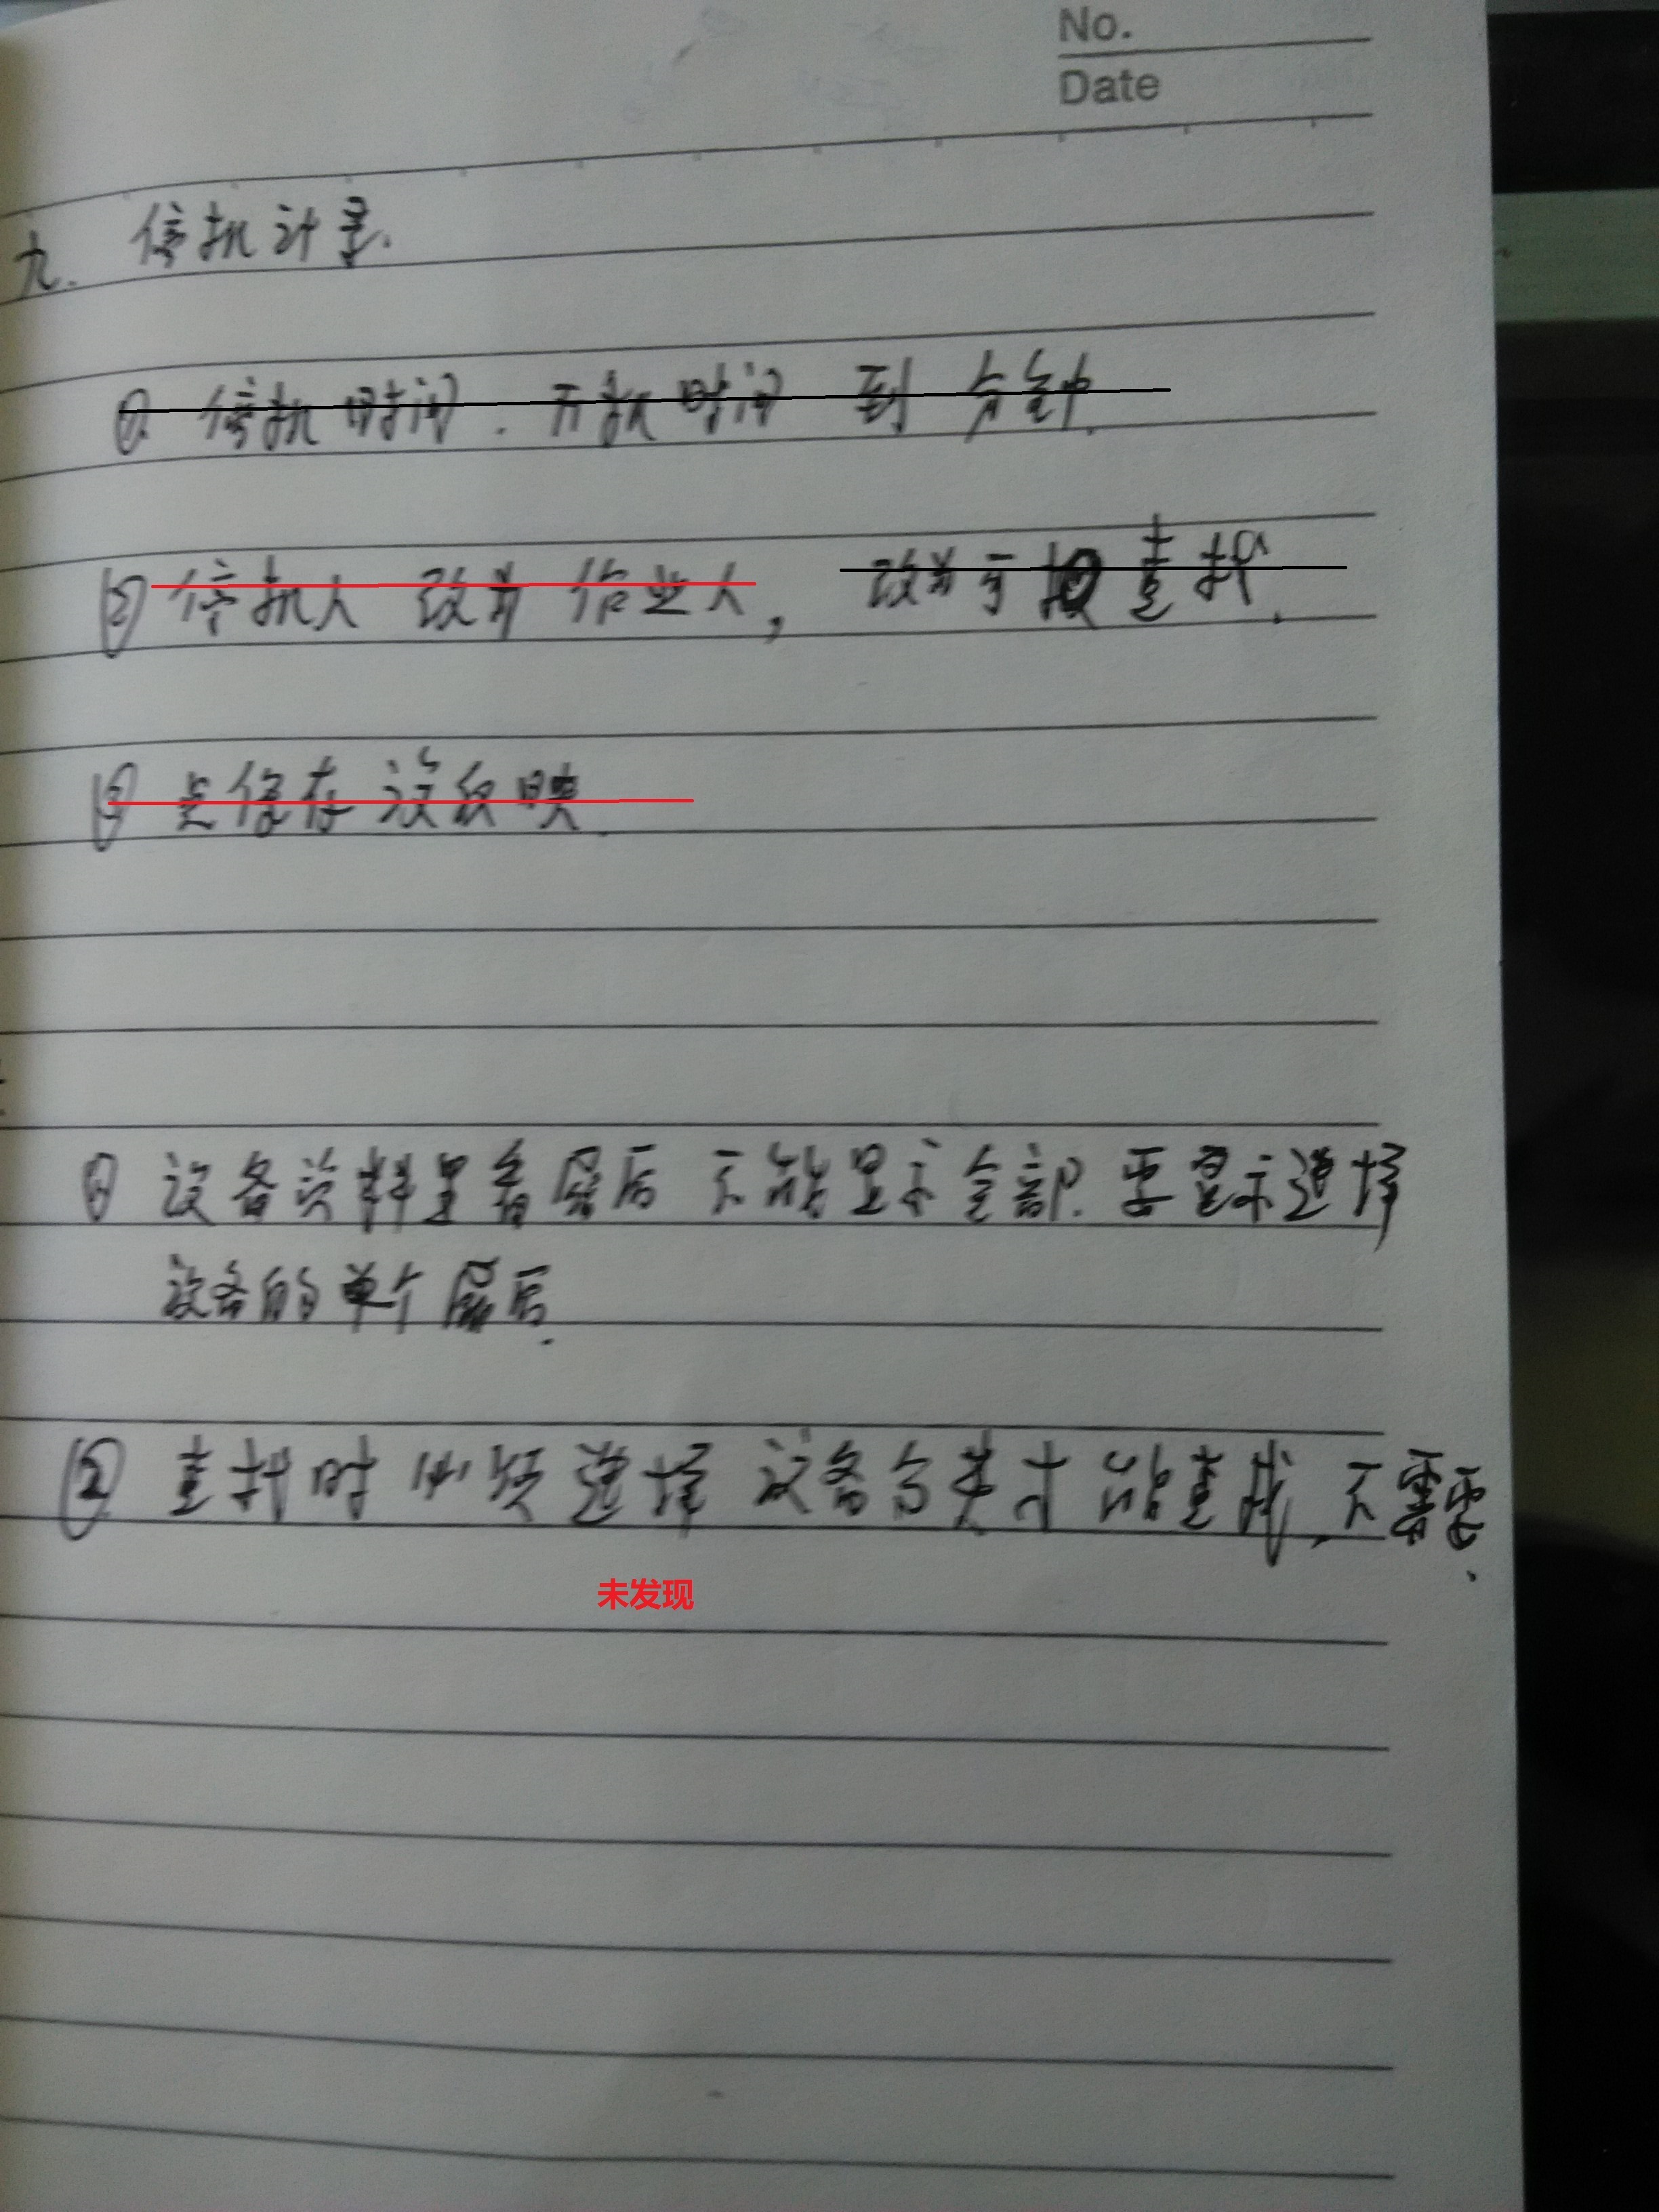 No.
Date
九. 停机计量.
①. 停机时间. 开机时间 到 分钟.
② 停机人 改为 作业人, 改为可 查找.
③ 点保存没反映.
① 设备资料里备 后 不能显示全部. 要显示选择
设备的单个 后.
② 查找时必须选择 设备分类才能查找, 不需要.
未发现